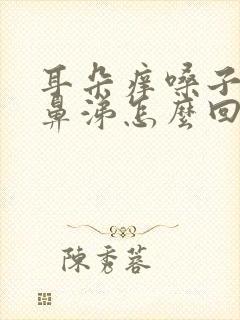 耳朵痒嗓子
鼻涕怎麼回
陳秀蓉